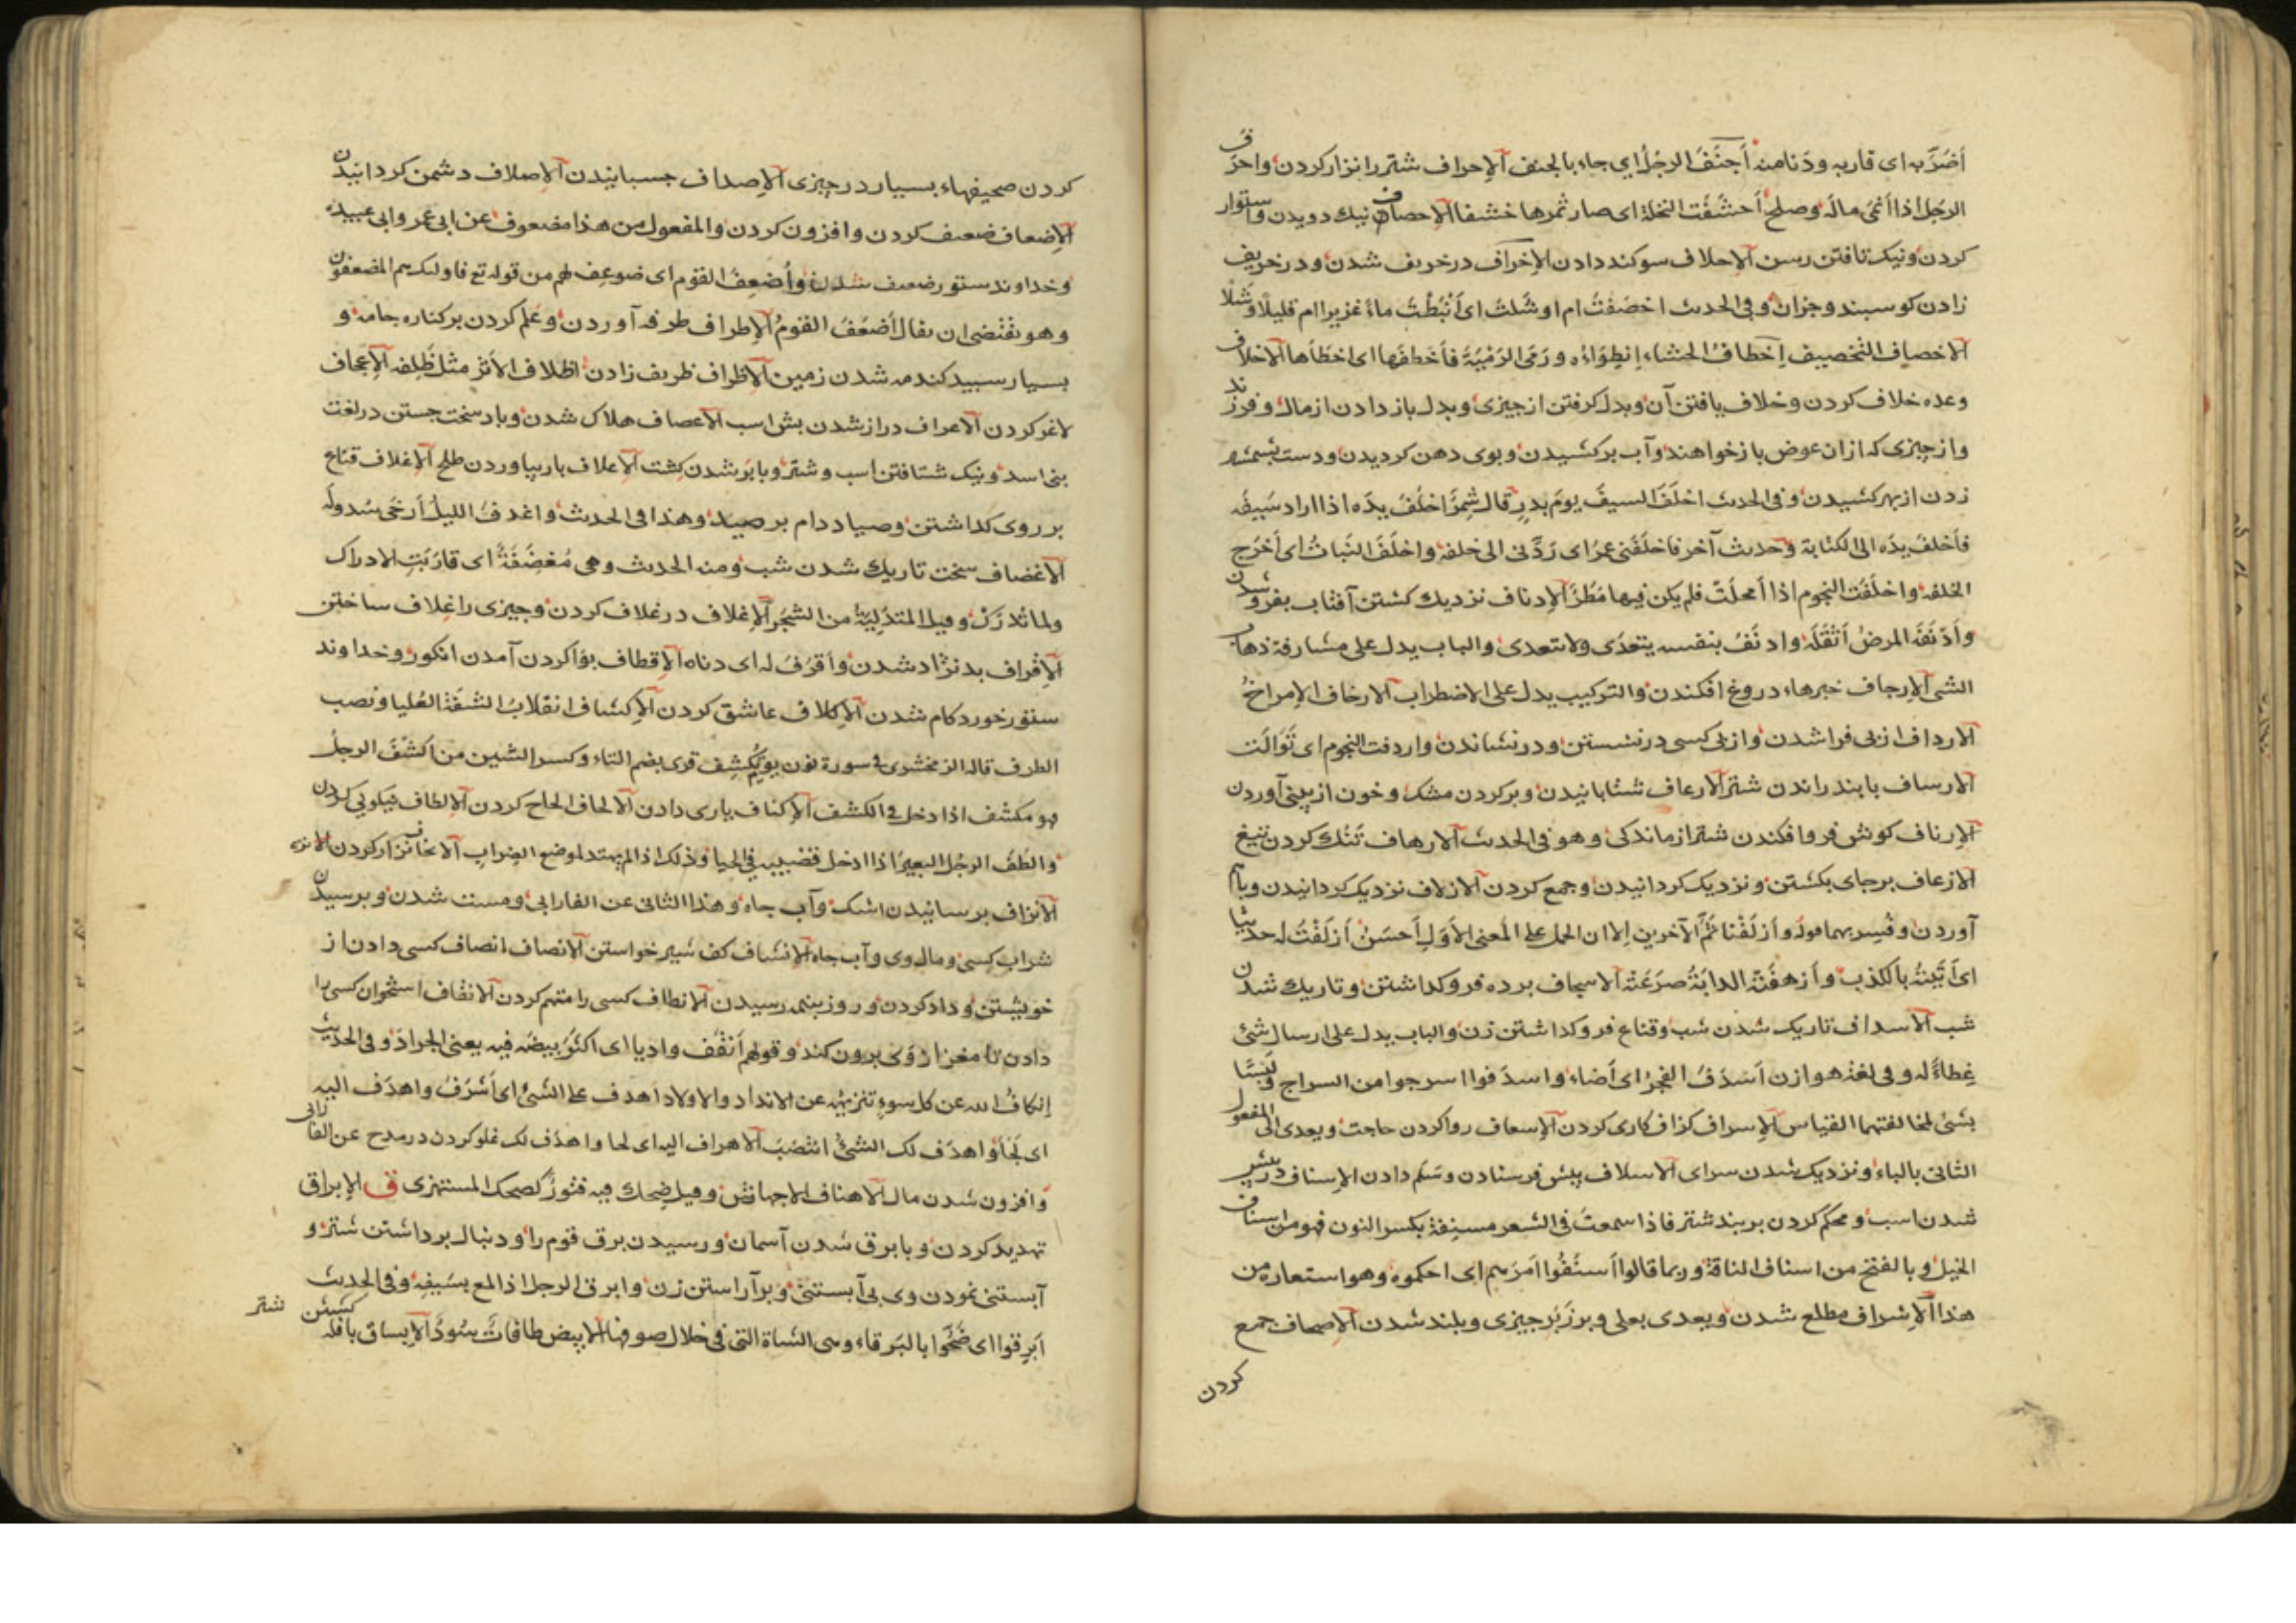 أضرّ به ای قاربه ودَنا منه أَجنَفَ الرجُلُ ای جاء بالجنف الإحراف شتر را نزار کردن واحرَف
الرجُل اذا أنْمَی مالُه وصلح أَحشَفَت النخلة ای صار ثمرها حشفا الإحصاف نیك دویدن واستوار
کردن ونیک تافتن رسن الإحلاف سوکند دادن الإخراف در خریف شدن ودر خریف
زادن کوسبند وجزان وفی الحدیث اخصَفْتَ ام اوشَلتَ ای أَنْبَطْتَ ماءً غزیرا ام قلیلًا وشَلًا
الاخصیاف التخصیف إخطافُ الحشاء إنطِوَاؤه ورَمَی الرَمْیَةَ فأَخطفَها ای اخطَأَها الاخلاف
وعده خلاف کردن وخلاف یافتن آن وبدل کرفتن از جیزی وبدل باز دادن از مال وفرزند
واز چیزی که ازان عوض باز خواهند وآب برکشیدن وبوی دهن کردیدن ودست بشمشیر
زدن از بهر کشیدن وفی الحدیث اخلَفَ السیفَ یومَ بدرٍ قال شِمرٌ اخلَفُ یدَه اذا اراد سَیفَه
فأخلفَ یدَه الی الکنانة وحدیث آخر فاخلَفَنی عمرُ ای رَدَّنی الی خلفه واخلَفَ النَباتُ ای أخرَج
الخلفه واخلَفَت النجوم اذا أمحلَتْ فلم یکن فیها مَطَرٌ الإدناف نزدیك کشتن آفتاب بفرو شدن
وأَدْنَفَه المرضُ أثْقَلَه وادنَفُ بنفسه یتعدَی ولا یتعدی والباب یدل علی مشارفة ذهاب
الشی الإرجاف خبرهاء دروغ افکندن والترکیب یدل علی الاضطراب الارخاف الإمراخُ
الارداف از بی فرا شدن واز بی کسی در نشستن ودر نشاندن واردفت النجوم ای تَوَالَت
الارساف با بند راندن شتر الارعاف شتابانیدن وبر کردن مشك وخون از بینی آوردن
الإرناف کوش فرو افکندن شتر از ماندکی وهو فی الحدیث الارهاف تَنُك کردن تیغ
الازعاف بر جای بکشتن ونزدیک کردانیدن وجمع کردن الازلاف نزدیک کردانیدن وباهم
آوردن وفُسِر بهما قوله وأَزلَفْنا ثَمَّ الآخرین إلا ان الحمل علی المعنی الأَوَلِ أَحسَنُ أَزلَفْتُ له حدیثا
ای أتَیْتُه بالکذب وأَزهفَتْه الدابَةُ صرَعَتْه الاسجاف برده فرو کذاشتن وتاریك شدن
شب الاسداف تاریک شدن شب وقناع فرو کذاشتن زن والباب یدل علی ارسال شئ
غِطاءً له وفی لغة هوازن أَسدَفَ الفجرُ ای أضاء واسدَفوا اسرجوا من السراج ولَیسَا
بشئ لمخالفتهما القیاس الإسراف کزاف کاری کردن الإسعاف روا کردن حاجت ویعدی الی المفعول
الثانی بالباء ونزدیک شدن سرای الاسلاف پیش فرستادن وسَلَم دادن الإسناف در پیش
شدن اسب ومحکم کردن بربند شتر فاذا سمعتَ فی الشعر مسنِفة بکسر النون فهو من اسناف
الخیل وبالفتح من اسناف الناقة وربما قالوا أسنَفُوا امرَهم ای احکموه وهو استعارة من
هذا الإشراف مطلع شدن ویعدی بعلی وبر زَبَر جیزی وبلند شدن الإصحاف جمع
کردن
کردن صحیفهاء بسیار در چیزی الإصداف جسبانیدن الإصلاف دشمن کردانیدن
الإضعاف ضعیف کردن وافزون کردن والمفعول من هذا مضعوف عن ابی عمر وابی عبیده
وخداوند ستور ضعیف شدن وأُضعِفَ القوم ای ضوعِف لهم من قوله تع فاولئک هم المضعفون
وهو یقتضی ان یقال أَضعَفَ القومُ الإطراف طرفه آوردن وعَلَم کردن بر کناره جامه و
بسیار سبید کندمه شدن زمین الإظراف ظریف زادن اظلاف الأثر مثل ظَلِفه الإعجاف
لاغر کردن الاعراف دراز شدن بش اسب الاعصاف هلاک شدن وباد سخت جستن در لغت
بنی اسد ونیک شتافتن اسب وشتر وبا بَر شدن کِشت الإعلاف بار بیاوردن طلح الإغلاف قناع
بر روی کذاشتن وصیاد دام بر صید وهذا فی الحدیث واغدفَ اللیلُ أرخَی سُدولَه
الاغضاف سخت تاریك شدن شب ومنه الحدیث وهی مُغضِفَةٌ ای قارَبَتِ الادراک
ولما تُدرَکْ وقیل المتدَلِیَةُ من الشَجَرِ الإغلاف در غلاف کردن وجیزی را غلاف ساختن
الإقراف بد نژاد شدن وأقرَفَ له ای دناه الإقطاف بوا کردن آمدن انکور وخداوند
ستور خورد کام شدن الإکلاف عاشق کردن الإکشاف انقلابُ الشفَة العُلیا ونصب
الطرف قاله الزمخشری فی سورة نون یوم یُکشِف قری بضم التاء وکسر الشین من اکشَفَ الرجلُ
هو مکشف اذا دخل فی الکشف الإکناف یاری دادن الالحاف الحاح کردن الإلطاف نیکویی کردن
والطَفَ الرجُل البعیرَ اذا ادخل قضیبه فی الحیا وذلک اذا لم یهتد لموضع الضِرابِ الانحاف نزار کردن
الأنزاف برسانیدن اشک وآب جاه وهذا الثانی عن الفارابی ومست شدن وبرسیدن
شراب کسی ومال وی وآب جاه الإنشاف کف شیر خواستن الانصاف انصاف کسی دادن از
خویشتن وداد کردن وروز بنیمه رسیدن الانطاف کسی را متهم کردن الانقاف استخوان کسی را
دادن تا مغز از وَی برون کند وقولهم أنقَفَ وادیا ای اکثَرَ بیضَه فیه یعنی الجرادَ وفی الحدیث
إنکافُ الله عن کل سوءٍ تنزیهُه عن الانداد والاولاد اهدف علی الشئ ای أشرَفَ واهدَف الیه
ای لَجَأَ واهدَف لک الشئُ انتصَبَ الاهراف الیه ای لجا واهدَف لک غلو کردن در مدح عن الفارابی
وافزون شدن مال الاهناف الاجهاش وقیل ضِحك فیه فتورٌ کضحك المستهزی ق الإبراق
تهدید کردن وبا برق شدن آسمان ورسیدن برق قوم را ودنبال برداشتن شتر و
آبستنی نمودن وی بی آبستنی وبر آراستن زن وابرق الرجل اذا لمع بسَیفِه وفی الحدیث
أبرِقوا ای ضَحُّوا بالبَرقاء وهی الشاة التی فی خلال صوفها الابیض طاقاتٌ سُودٌ الإبساق با فله
کشتن شتر